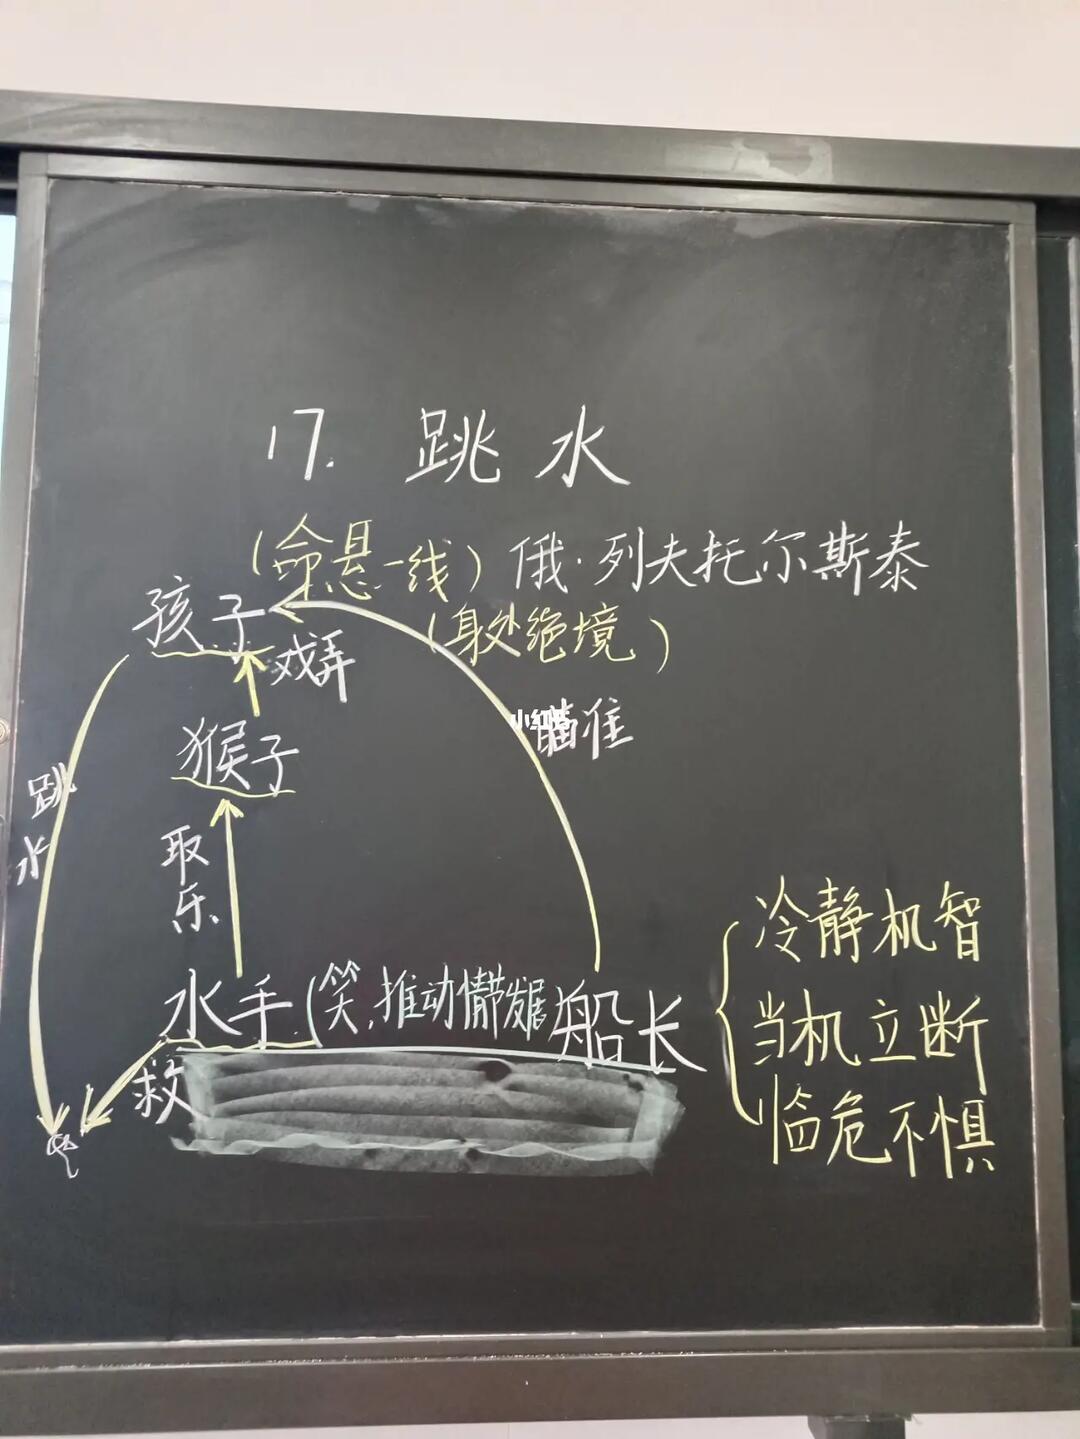 17. 跳水
(命悬一线) 俄·列夫托尔斯泰
孩子
(身处绝境)
戏弄
小红书
瞄准
猴子
跳水
取乐
冷静机智
水手(笑,推动情节发展
船长
当机立断
救
临危不惧